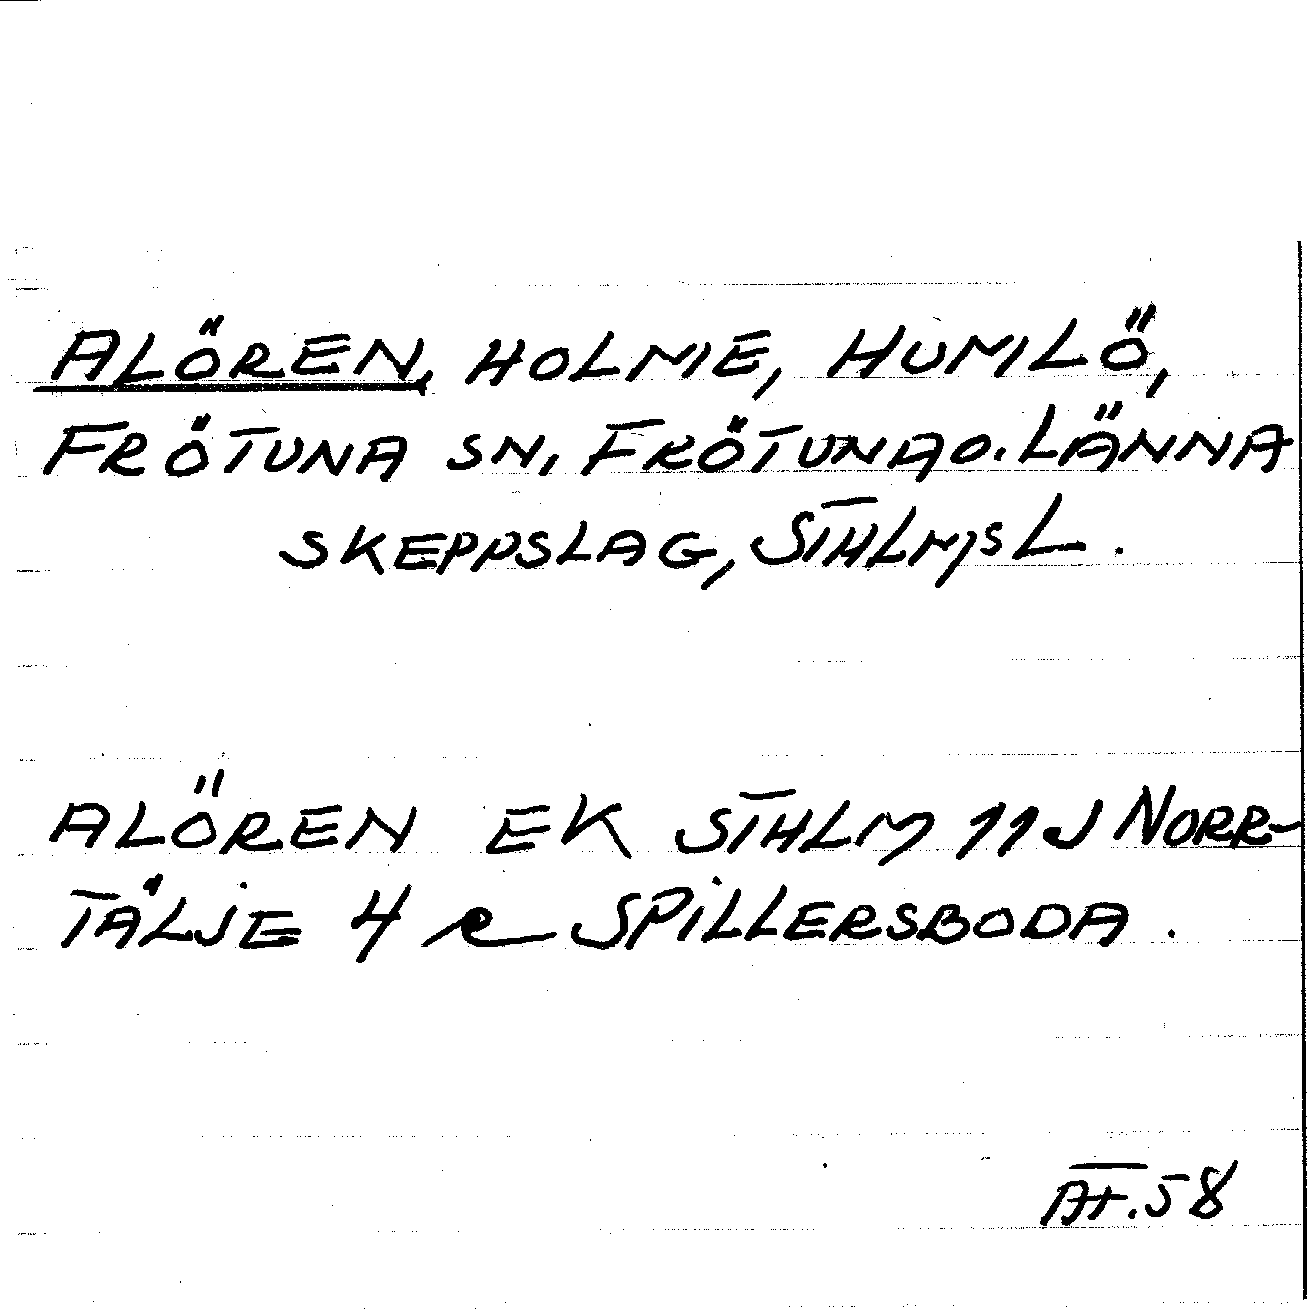 ALÖREN, HOLME, HUMLÖ,
FRÖTUNA SN, FRÖTUNA O. LÄNNA
SKEPPSLAG, STHLMS L.
ALÖREN EK STHLM 11J NORR-
TÄLJE 4 e SPILLERSBODA.
AT.58